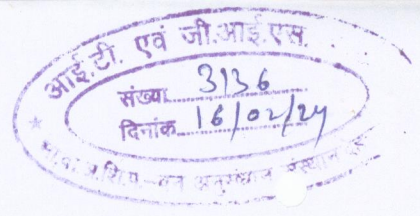 आई.टी. एवं जी.आई.एस.
संख्या 3136
दिनांक 16/02/24
भा.वा.अ.शि.प.-वन अनुसंधान संस्थान